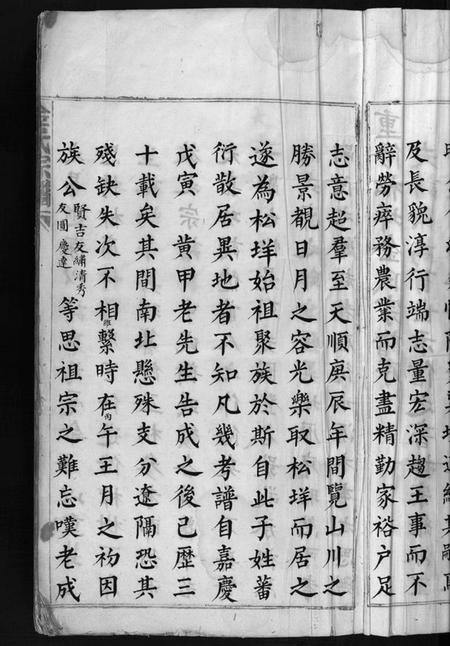 及長貌淳行端志量宏深趨王事而不
辭勞瘁務農業而克盡精勤家裕户足
志意超羣至天順庚辰年間覽山川之
勝景覩日月之容光樂取松垟而居之
遂為松垟始祖聚族於斯自此子姓蕃
衍散居異地者不知凡幾考譜自嘉慶
戊寅 黄甲老先生告成之後已歷三
十載矣其間南北懸殊支分遼隔恐其
殘缺失次不相維繫時在丙午王月之初因
族公賢吉友繡清秀友圃慶達等思祖宗之難忘嘆老成